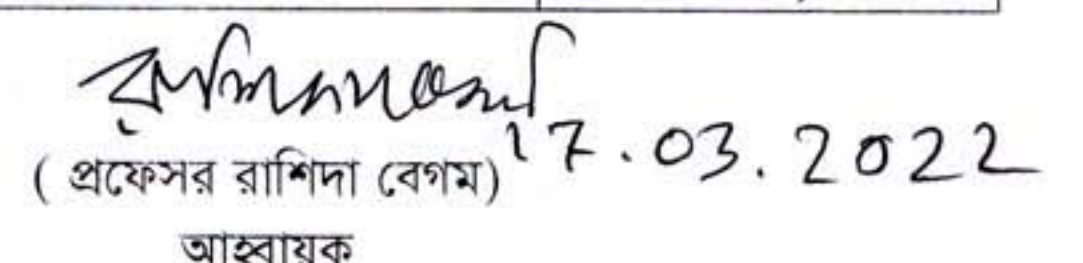 17.03.2022
( প্রফেসর রাশিদা বেগম)
আহবায়ক